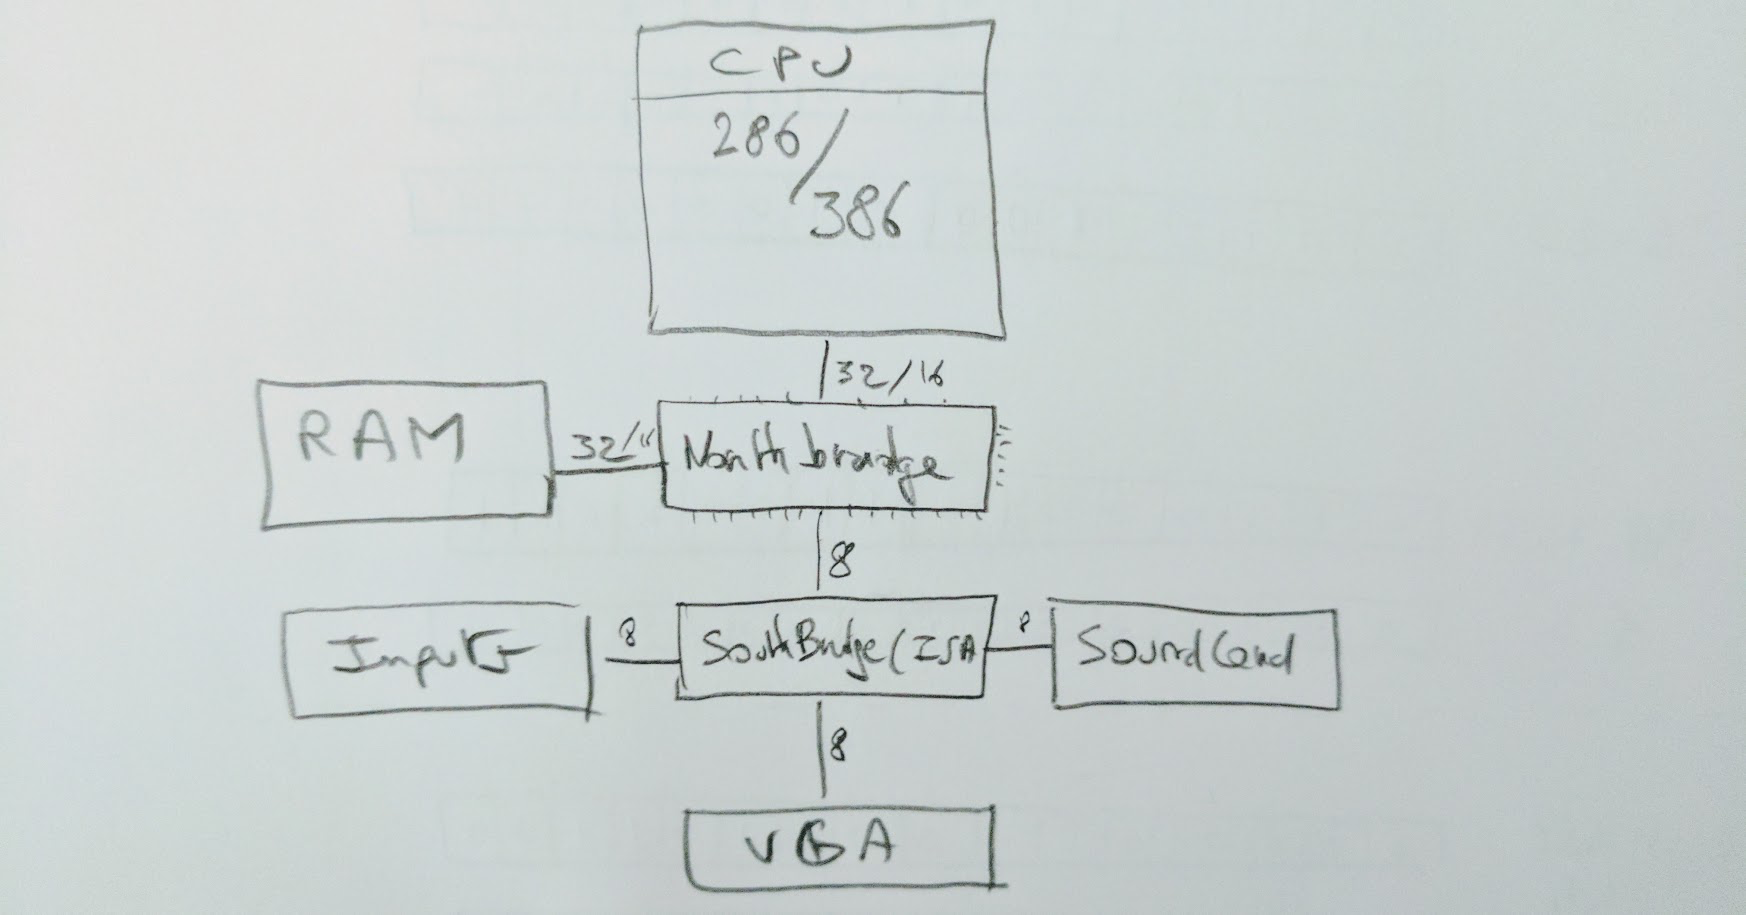 CPU
286/
386
32/16
RAM
32/16
Northbridge
8
Inputs
8
SouthBridge (ISA
8
Sound Card
8
VGA